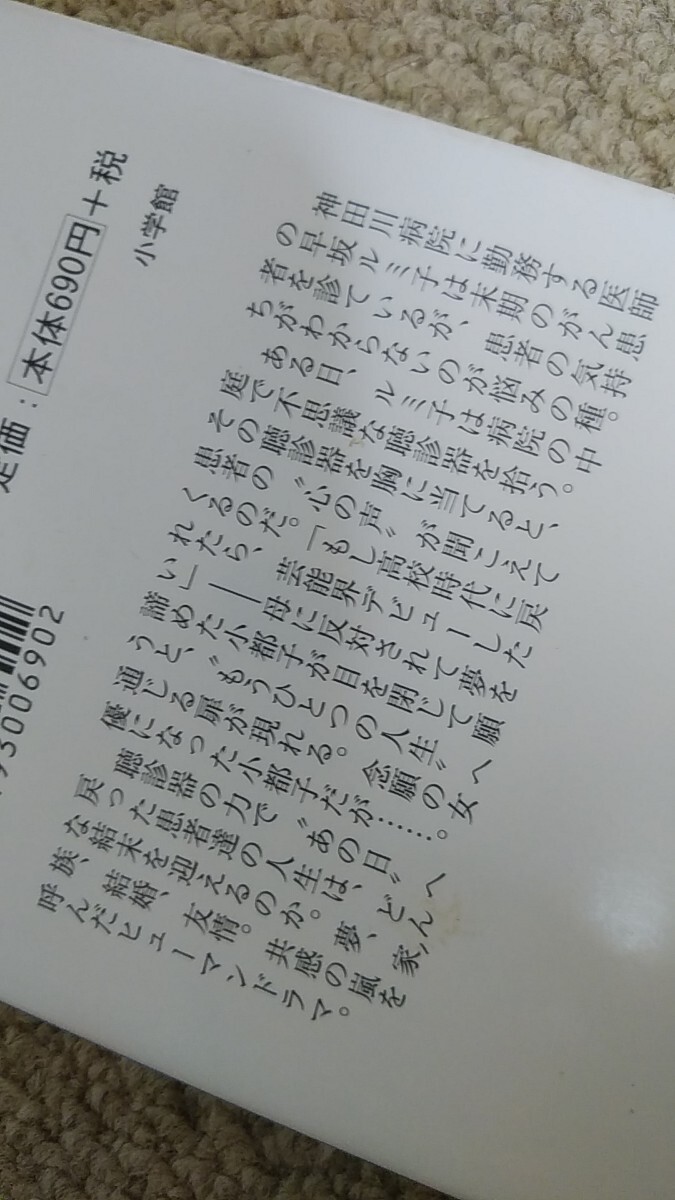 神田川病院に勤務する医師
の早坂ルミ子は末期のがん患
者を診ているが、患者の気持
ちがわからないのが悩みの種。
ある日、ルミ子は病院の中
庭で不思議な聴診器を拾う。
その聴診器を胸に当てると、
患者の〝心の声〟が聞こえて
くるのだ。「もし高校時代に戻
れたら、芸能界デビューした
い」——母に反対されて夢を
諦めた小都子が目を閉じて願
うと、〝もうひとつの人生〟へ
通じる扉が現れる。念願の女
優になった小都子だが……。
聴診器の力で〝あの日〟へ
戻った患者達の人生は、どん
な結末を迎えるのか。夢、家
族、結婚、友情。共感の嵐を
呼んだヒューマンドラマ。
小学館
定価：本体690円＋税
93006902